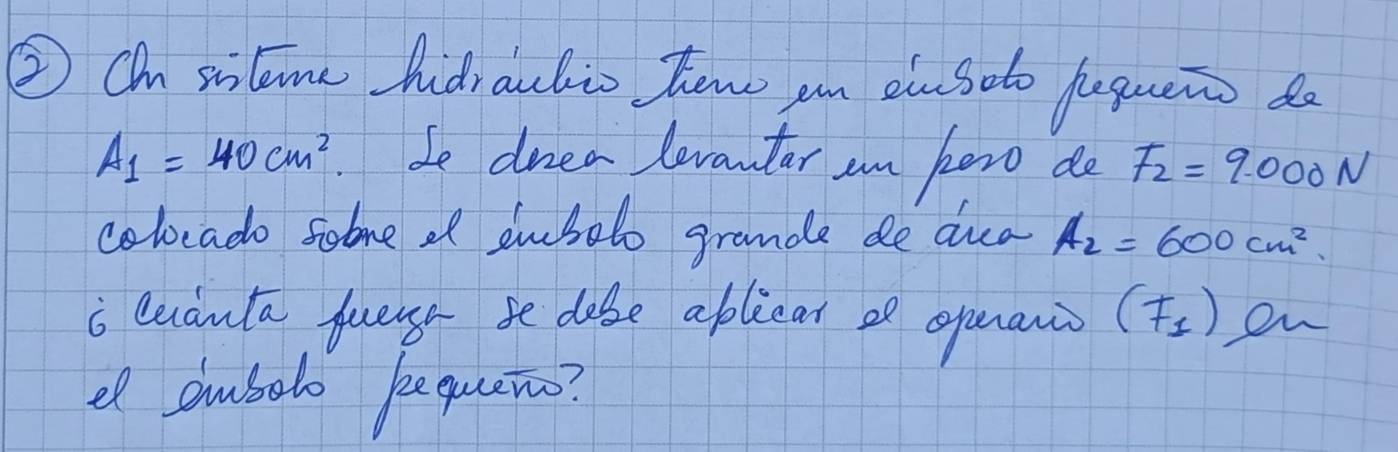 ② Un sistema hidráulico tiene un émbolo pequeño de
A1 = 40 cm². Se desea levantar un peso de F2 = 9.000 N
colocado sobre el émbolo grande de área A2 = 600 cm².
¿Cuánta fuerza se debe aplicar el operario (F1) en
el émbolo pequeño?